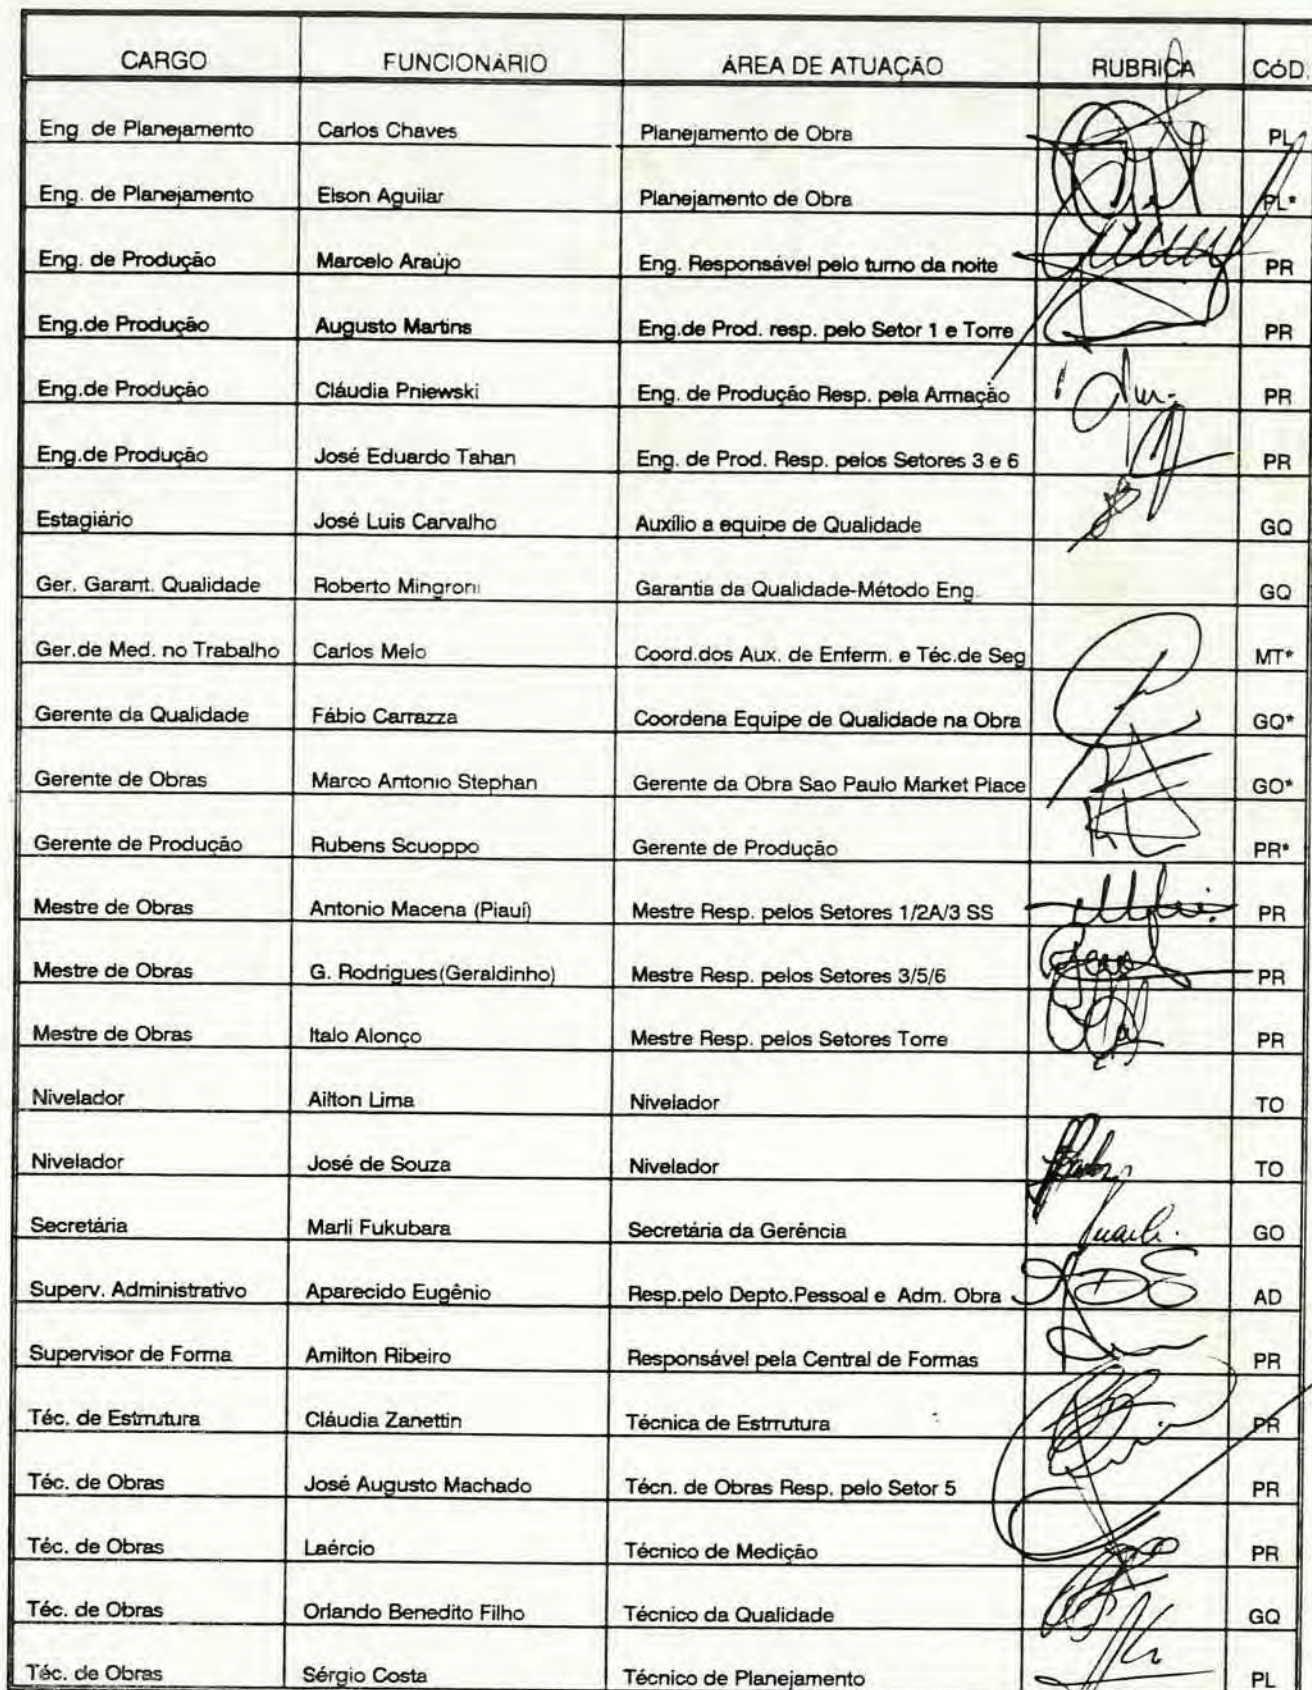 CARGO FUNCIONÁRIO ÁREA DE ATUAÇÃO RUBRICA CÓD.
Eng de Planejamento Carlos Chaves Planejamento de Obra PL
Eng. de Planejamento Elson Aguilar Planejamento de Obra PL*
Eng. de Produção Marcelo Araújo Eng. Responsável pelo turno da noite PR
Eng.de Produção Augusto Martins Eng.de Prod. resp. pelo Setor 1 e Torre PR
Eng.de Produção Cláudia Pniewski Eng. de Produção Resp. pela Armação PR
Eng.de Produção José Eduardo Tahan Eng. de Prod. Resp. pelos Setores 3 e 6 PR
Estagiário José Luis Carvalho Auxílio a equipe de Qualidade GQ
Ger. Garant. Qualidade Roberto Mingroni Garantia da Qualidade-Método Eng. GQ
Ger.de Med. no Trabalho Carlos Melo Coord.dos Aux. de Enferm. e Téc.de Seg MT*
Gerente da Qualidade Fábio Carrazza Coordena Equipe de Qualidade na Obra GQ*
Gerente de Obras Marco Antonio Stephan Gerente da Obra Sao Paulo Market Place GO*
Gerente de Produção Rubens Scuoppo Gerente de Produção PR*
Mestre de Obras Antonio Macena (Piauí) Mestre Resp. pelos Setores 1/2A/3 SS PR
Mestre de Obras G. Rodrigues(Geraldinho) Mestre Resp. pelos Setores 3/5/6 PR
Mestre de Obras Italo Alonço Mestre Resp. pelos Setores Torre PR
Nivelador Ailton Lima Nivelador TO
Nivelador José de Souza Nivelador TO
Secretária Marli Fukubara Secretária da Gerência GO
Superv. Administrativo Aparecido Eugênio Resp.pelo Depto.Pessoal e Adm. Obra AD
Supervisor de Forma Amilton Ribeiro Responsável pela Central de Formas PR
Téc. de Estrrutura Cláudia Zanettin Técnica de Estrrutura PR
Téc. de Obras José Augusto Machado Técn. de Obras Resp. pelo Setor 5 PR
Téc. de Obras Laércio Técnico de Medição PR
Téc. de Obras Orlando Benedito Filho Técnico da Qualidade GQ
Téc. de Obras Sérgio Costa Técnico de Planejamento PL